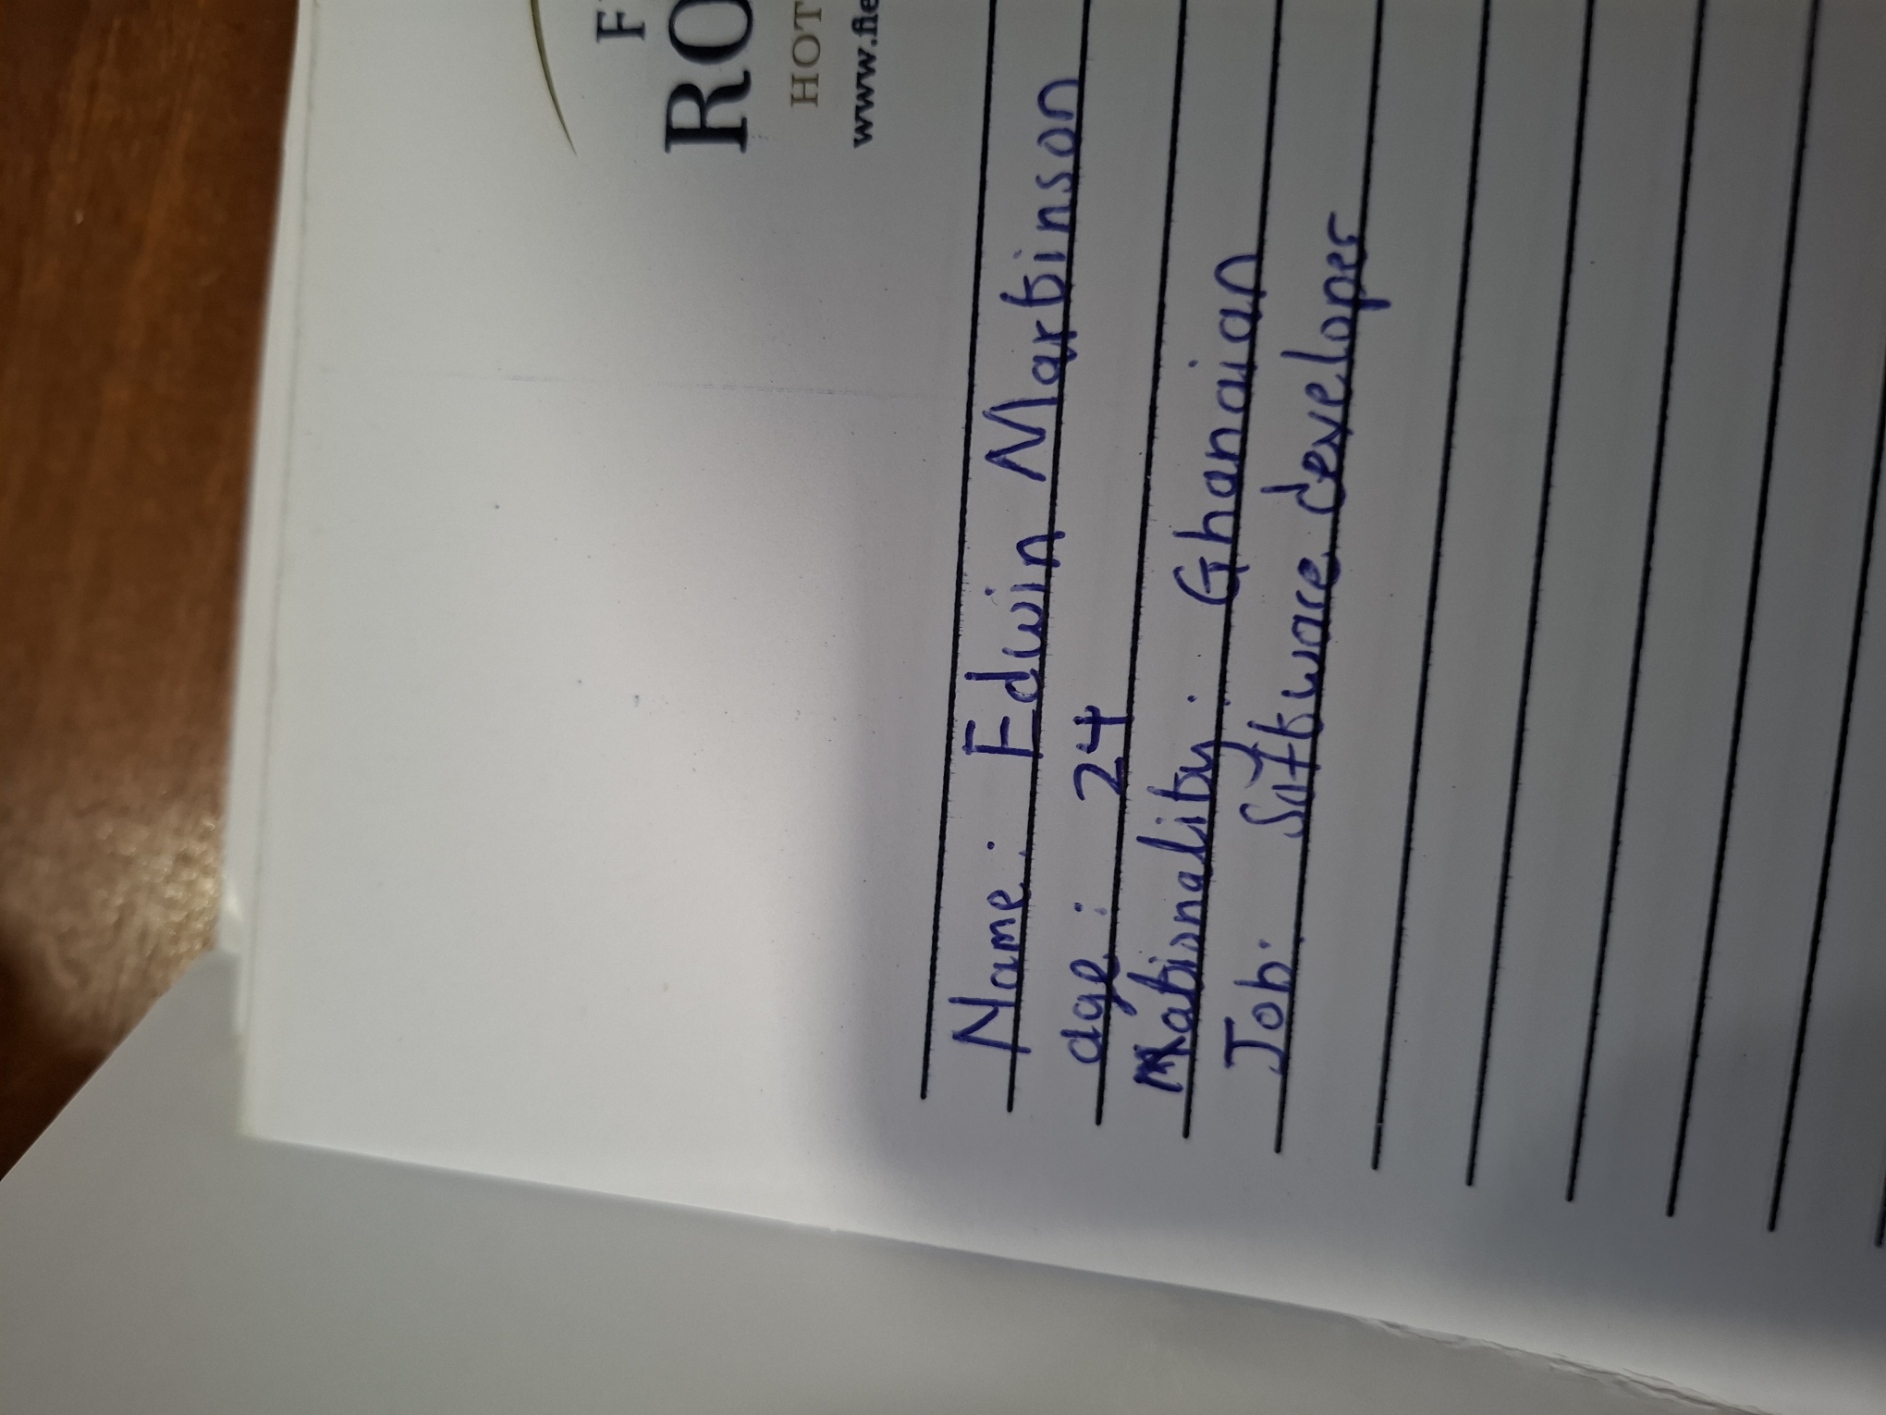 F
RO
HOT
www.fie
Name: Edwin Martinson
age: 24
Nationality: Ghanaian
Job: Software developer